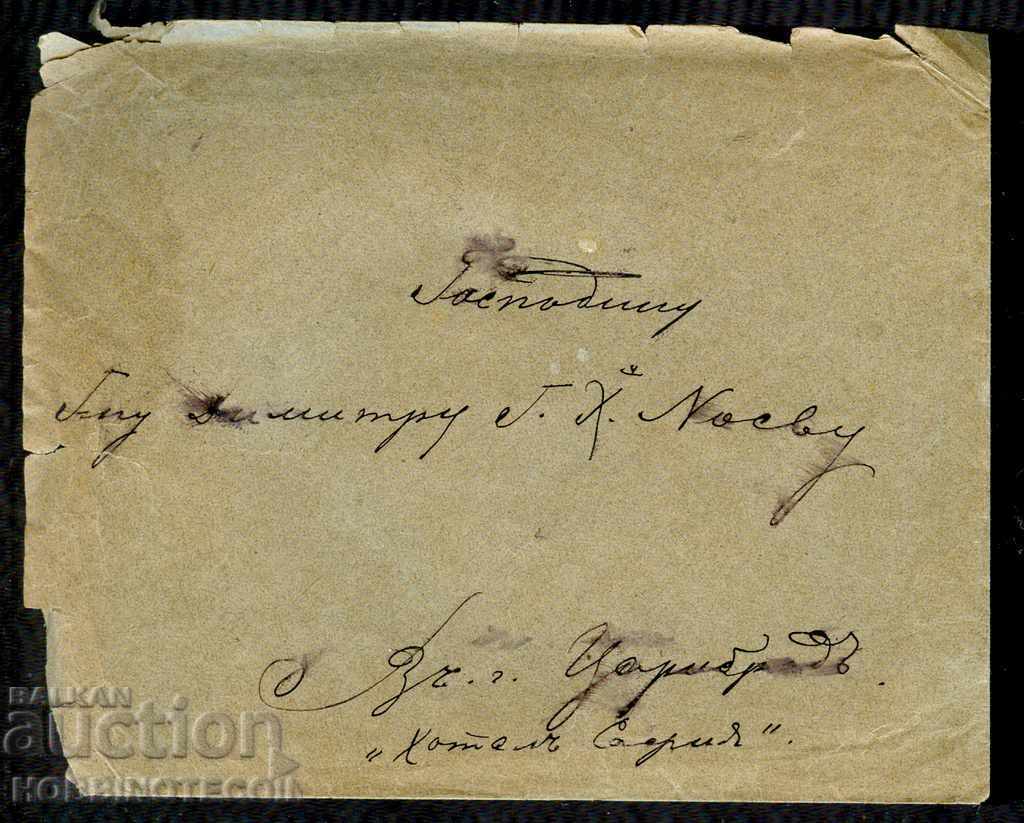 Господину
Гну Димитру Г. Х. Ноеву
Въ. г. Царибродъ.
„Хотелъ София".
BALKAN
auction
HOBBINOTECOIN